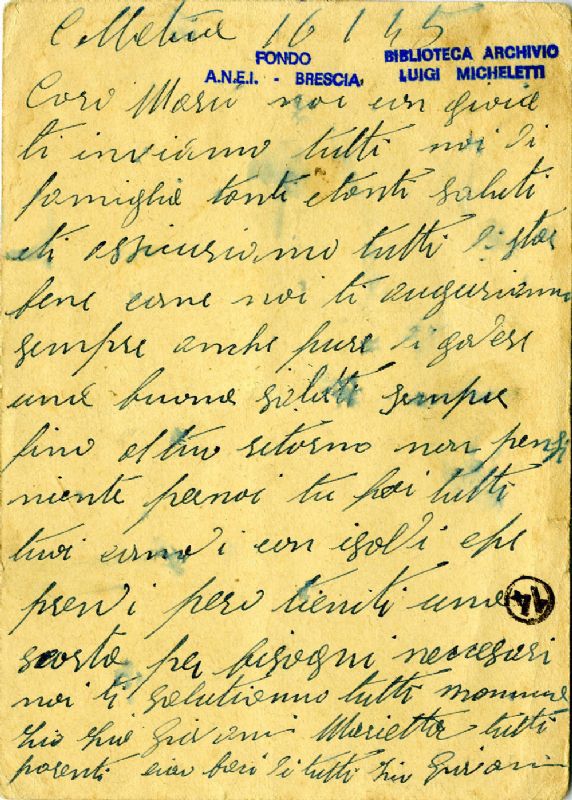 16 1 45
FONDO
A.N.E.I. - BRESCIA
BIBLIOTECA ARCHIVIO
LUIGI MICHELETTI
Caro Mario noi con gioia
ti inviamo tutti noi di
famiglia tanti e tanti saluti
e ti assicuriamo tutti di star
bene come noi ti auguriamo
sempre anche pure di godere
una buona saluti sempre
fino al tuo ritorno non pensi
niente per noi tu fai tutti
tuoi comodi con i soldi che
prendi pero tieniti una
14
scorta per bisogni neccesari
noi ti salutianno tutti mamma
zio zia Giovani Marietta tutti
parenti ciao baci di tutti zio Giovani